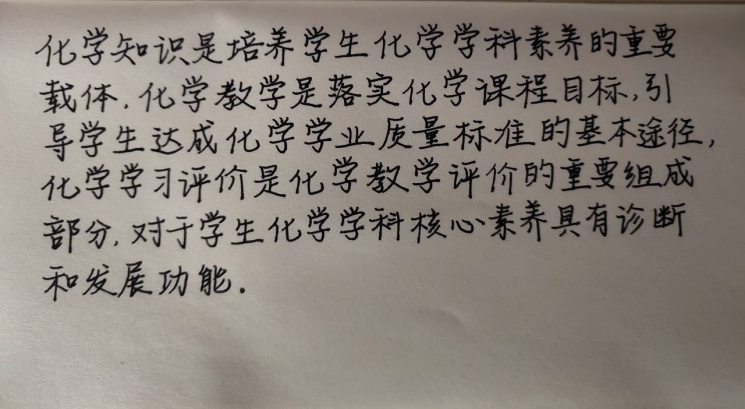 化学知识是培养学生化学学科素养的重要
载体.化学教学是落实化学课程目标,引
导学生达成化学学业质量标准的基本途径,
化学学习评价是化学教学评价的重要组成
部分.对于学生化学学科核心素养具有诊断
和发展功能.